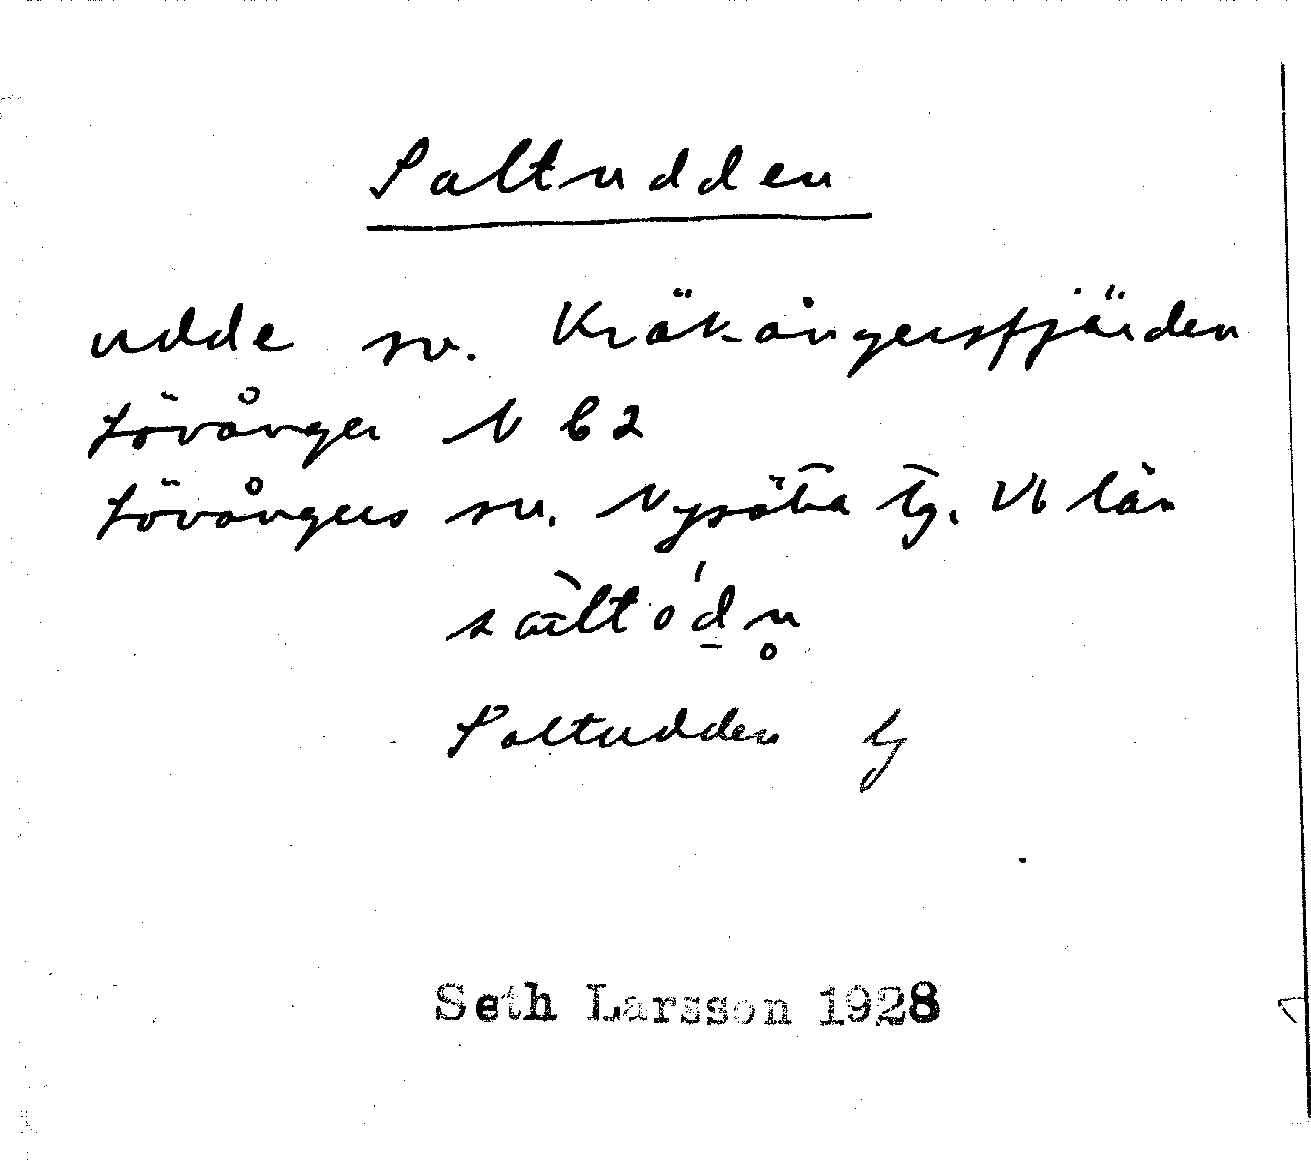 Saltudden
udde sv. Kräkångersfjärden
Lövånger N C 2
Lövångers sn. Nysätra tg. Vb län
Saltudden tg
Seth Larsson 1928